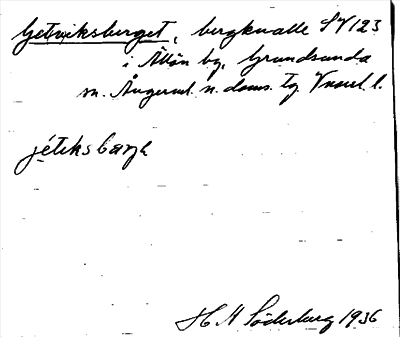 Getviksberget, bergknalle SV 123
i Ällön by, Grundsunda
sn. Ångerml. n. doms. tg Vnorrl. l.
jétiksbærjε
H M Söderberg 1936